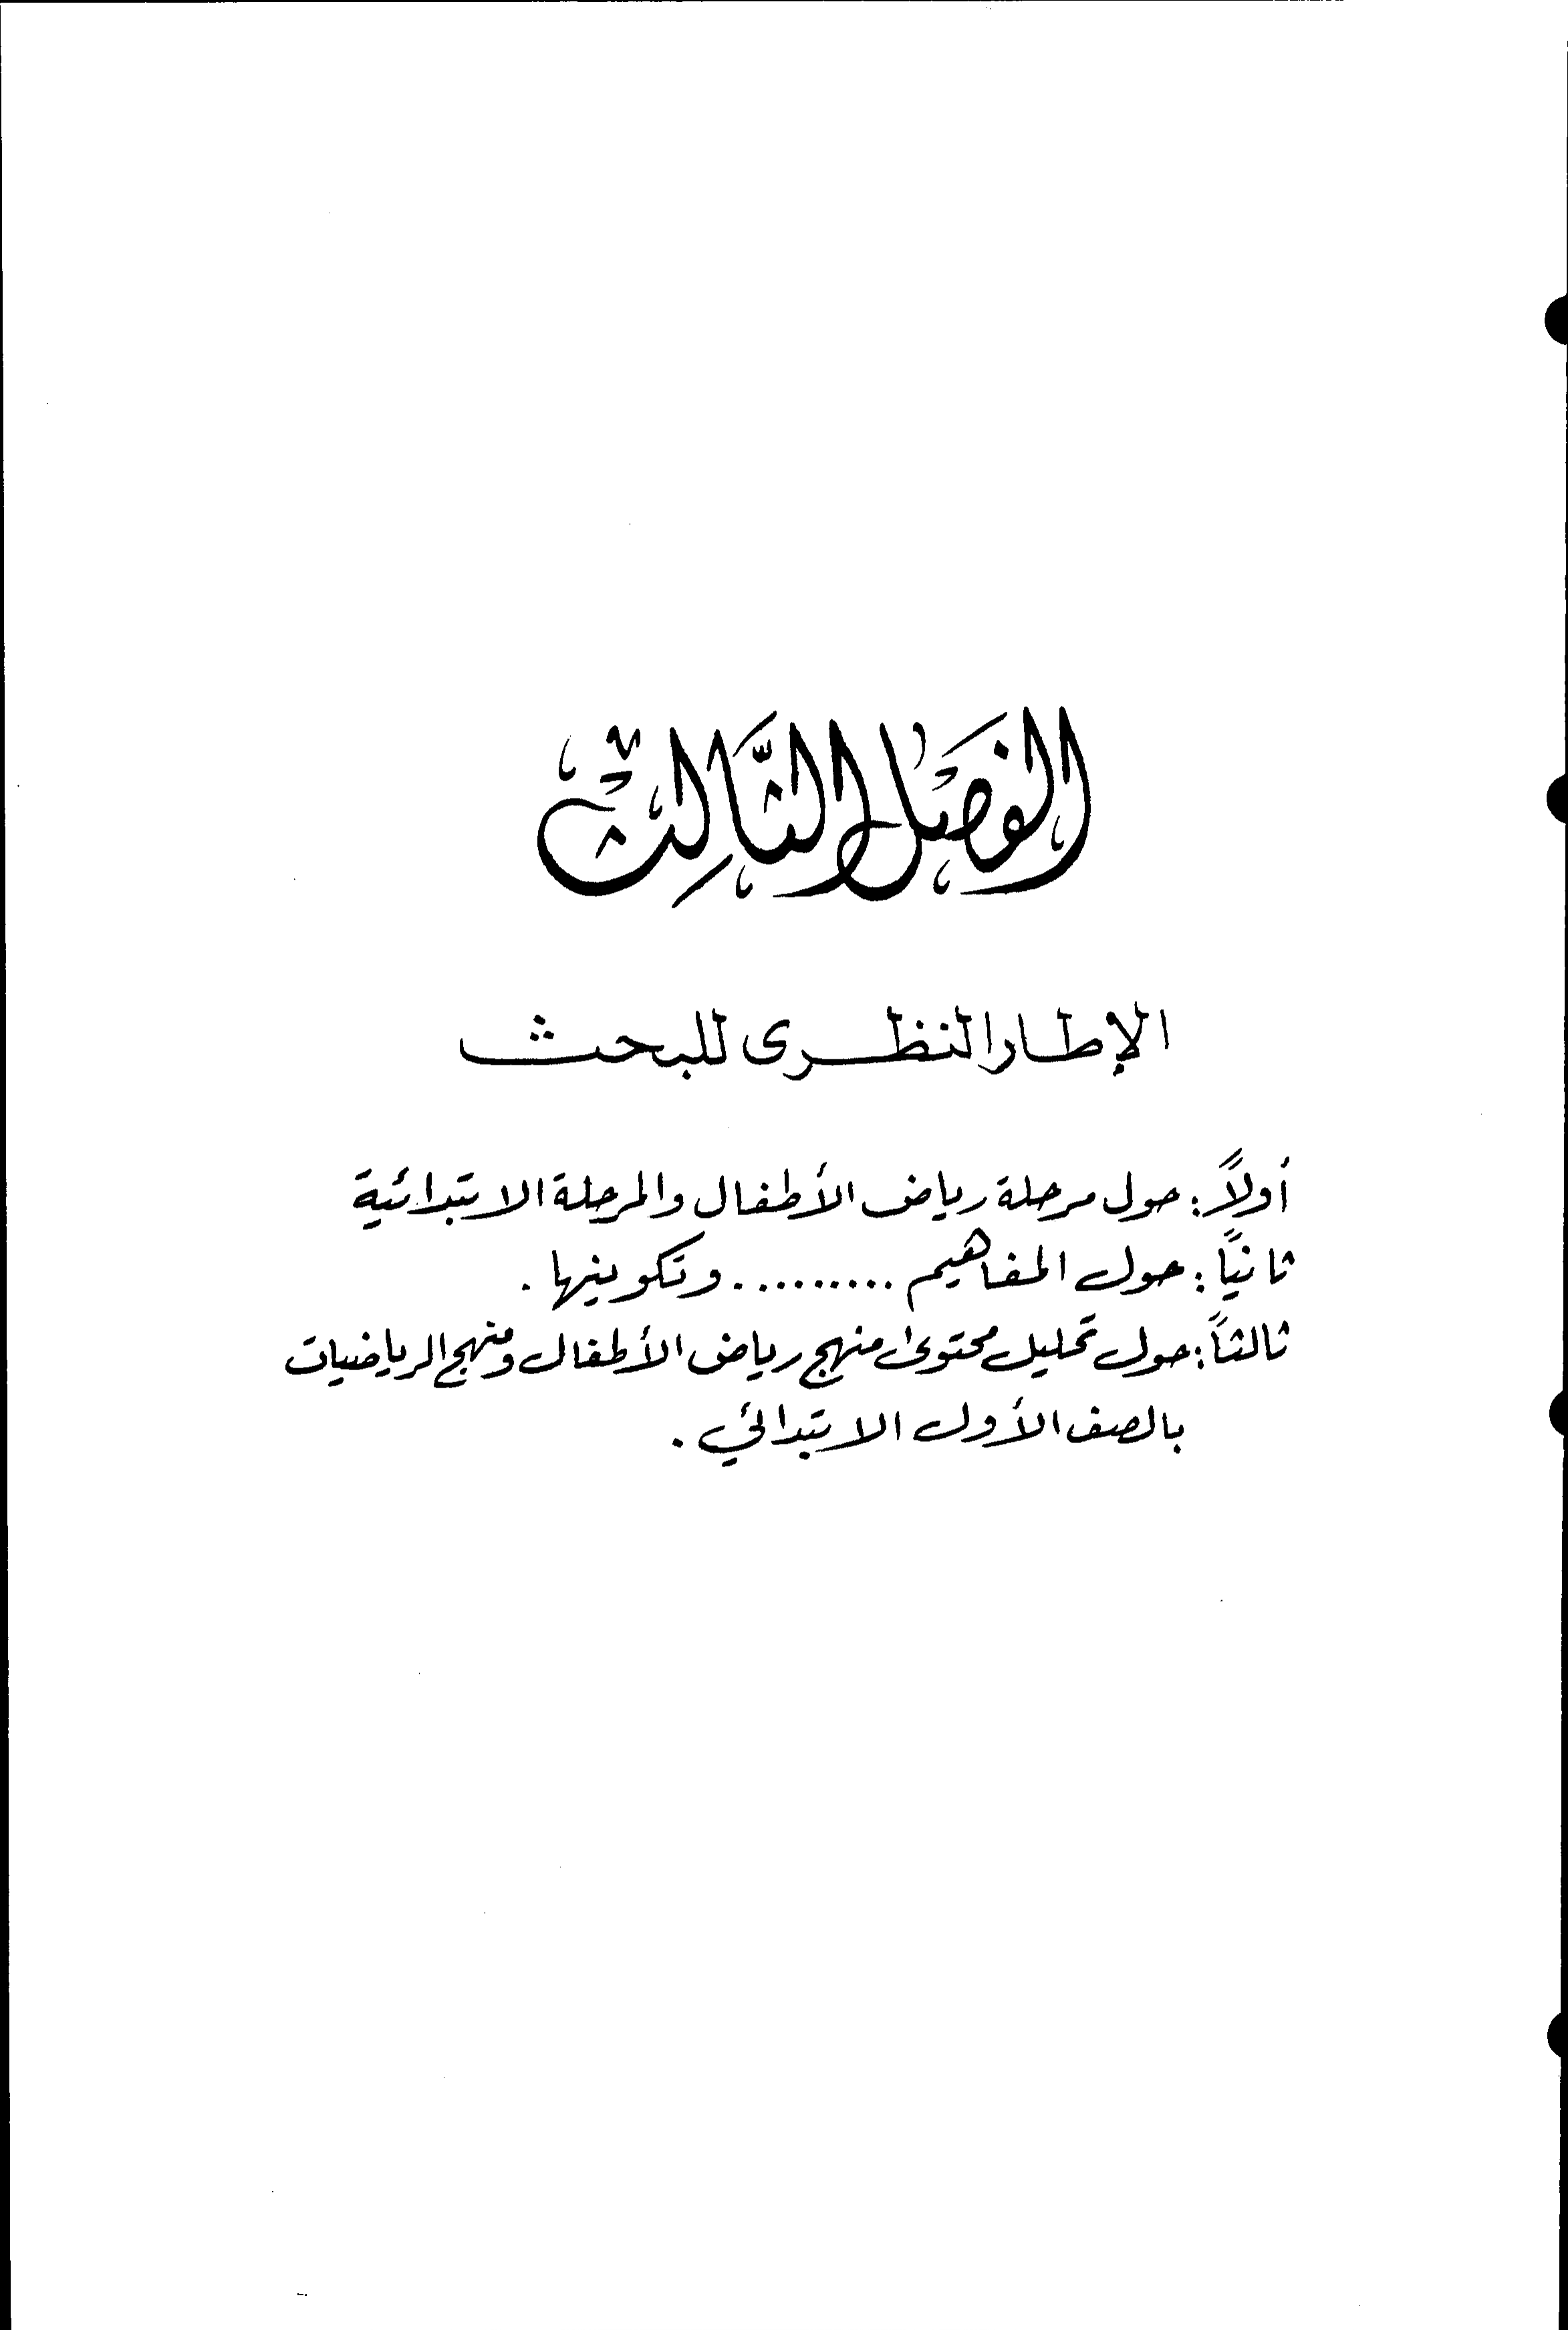 الفصل الثالث
الإطار النظرى للبحث
أولاً: حول مرحلة رياض الأطفال والمرحلة الابتدائية
ثانيًا: حول المفاهيم .......... وتكوينها.
ثالثاً: حول تحليل محتوى منهج رياض الأطفال ومنهج الرياضيات
بالصف الأول الابتدائي.